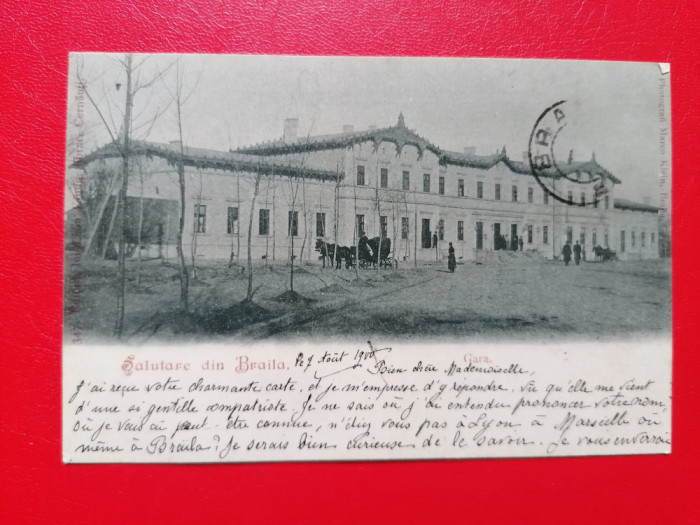 BRA
Photograf Marco Klein,
Salutare din Braila.
Gara.
le 7 Août 1900
Bien chère Mademoiselle,
J'ai reçue votre charmante carte, et je m'empresse d'y répondre. vu qu'elle me vient
d'une si gentille compatriste. Je ne sais où j'ai entendu prononcer votre nom,
où je vous ai peut-être connue, n'êtes vous pas à Lyon à Marseille où
même à Braïla? Je serais bien curieuse de le savoir. Je vous enverrai